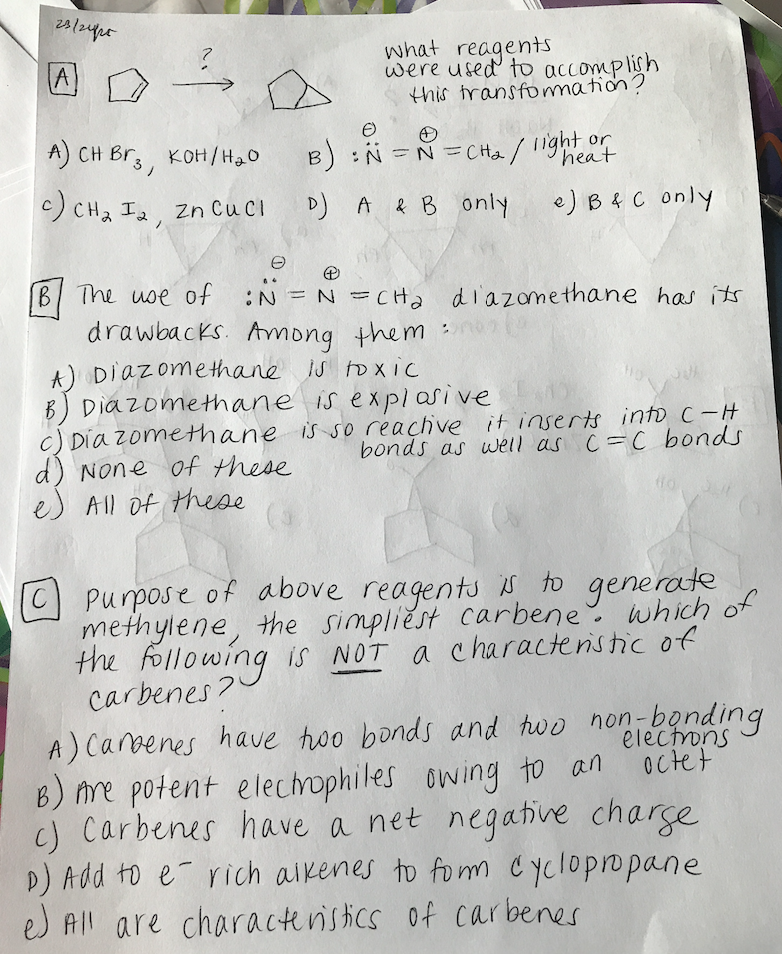 ?
What reagents
were used to accomplish
this transformation?
A
A) CH Br3, KOH/H2O B) ⊖ :N̈ = N⊕ = CH2 / light or
heat
C) CH2 I2, Zn CuCl D) A & B only e) B & C only
B The use of ⊖ :N̈ = N⊕ = CH2 diazomethane has its
drawbacks. Among them :
A) Diazomethane is toxic
B) Diazomethane is explosive
C) Diazomethane is so reactive it inserts into C-H
bonds as well as C=C bonds
d) None of these
e) All of these
C Purpose of above reagents is to generate
methylene, the simpliest carbene. Which of
the following is NOT a characteristic of
carbenes?
A) Carbenes have two bonds and two non-bonding
electrons
B) Are potent electrophiles owing to an octet
C) Carbenes have a net negative charge
D) Add to e- rich alkenes to form cyclopropane
e) All are characteristics of carbenes